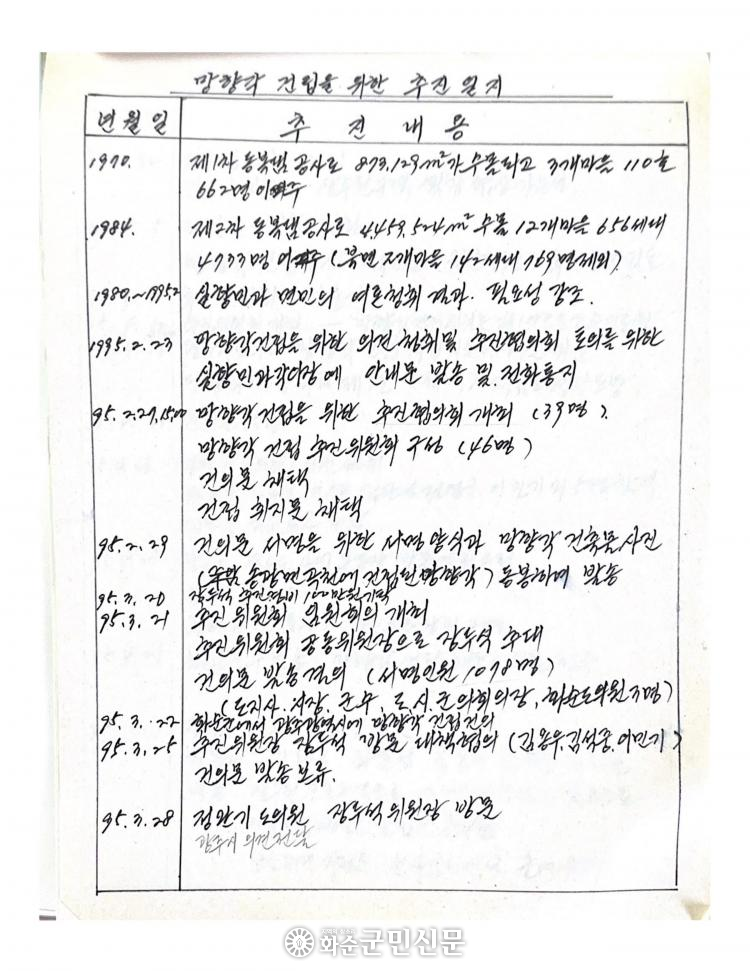 망향각 건립을 위한 추진일지
년월일 추진내용
1970. 제1차 동복댐 공사로 873,129m²가 수몰되고 3개마을 110호
662명 이주
1984. 제2차 동복댐 공사로 4,459,524m² 수몰 12개마을 656세대
4733명 이주 (북면 2개마을 142세대 769명제외)
1980.~1995.2 실향민과 면민의 여론청취 결과. 필요성 강조.
1995.2.23 망향각건립을 위한 의견청취및 추진협의회 토의를 위한
실향민과각이장에 안내문 발송 및 전화통지
95.2.27,1500 망향각 건립을 위한 추진협의회 개최 (39명).
망향각 건립 추진위원회 구성 (46명)
건의문 채택
건립 취지문 채택
95.2.29 건의문 서명을 위한 서명양식과 망향각 건축물사진
(송광면 곡천에 건립된 망향각) 동봉하여 발송
95.3.20 장두석 추진 100만원기탁
95.3.21 추진위원회 임원회의 개최
추진위원회 공동위원장으로 장두석 추대
건의문 발송결의 (서명인원 1078명)
(도지사.시장.군수, 도.시.군의회의장, 화순도의원 3명)
95.3.22 화순군에서 광주광역시에 망향각 건립건의
95.3.25 추진위원장 장두석 방문 대책협의 (김용우,김석중,이민기)
건의문 발송보류.
95.3.28 정완기 도의원 장두석위원장 방문
광주시 의견전달
화순군민신문